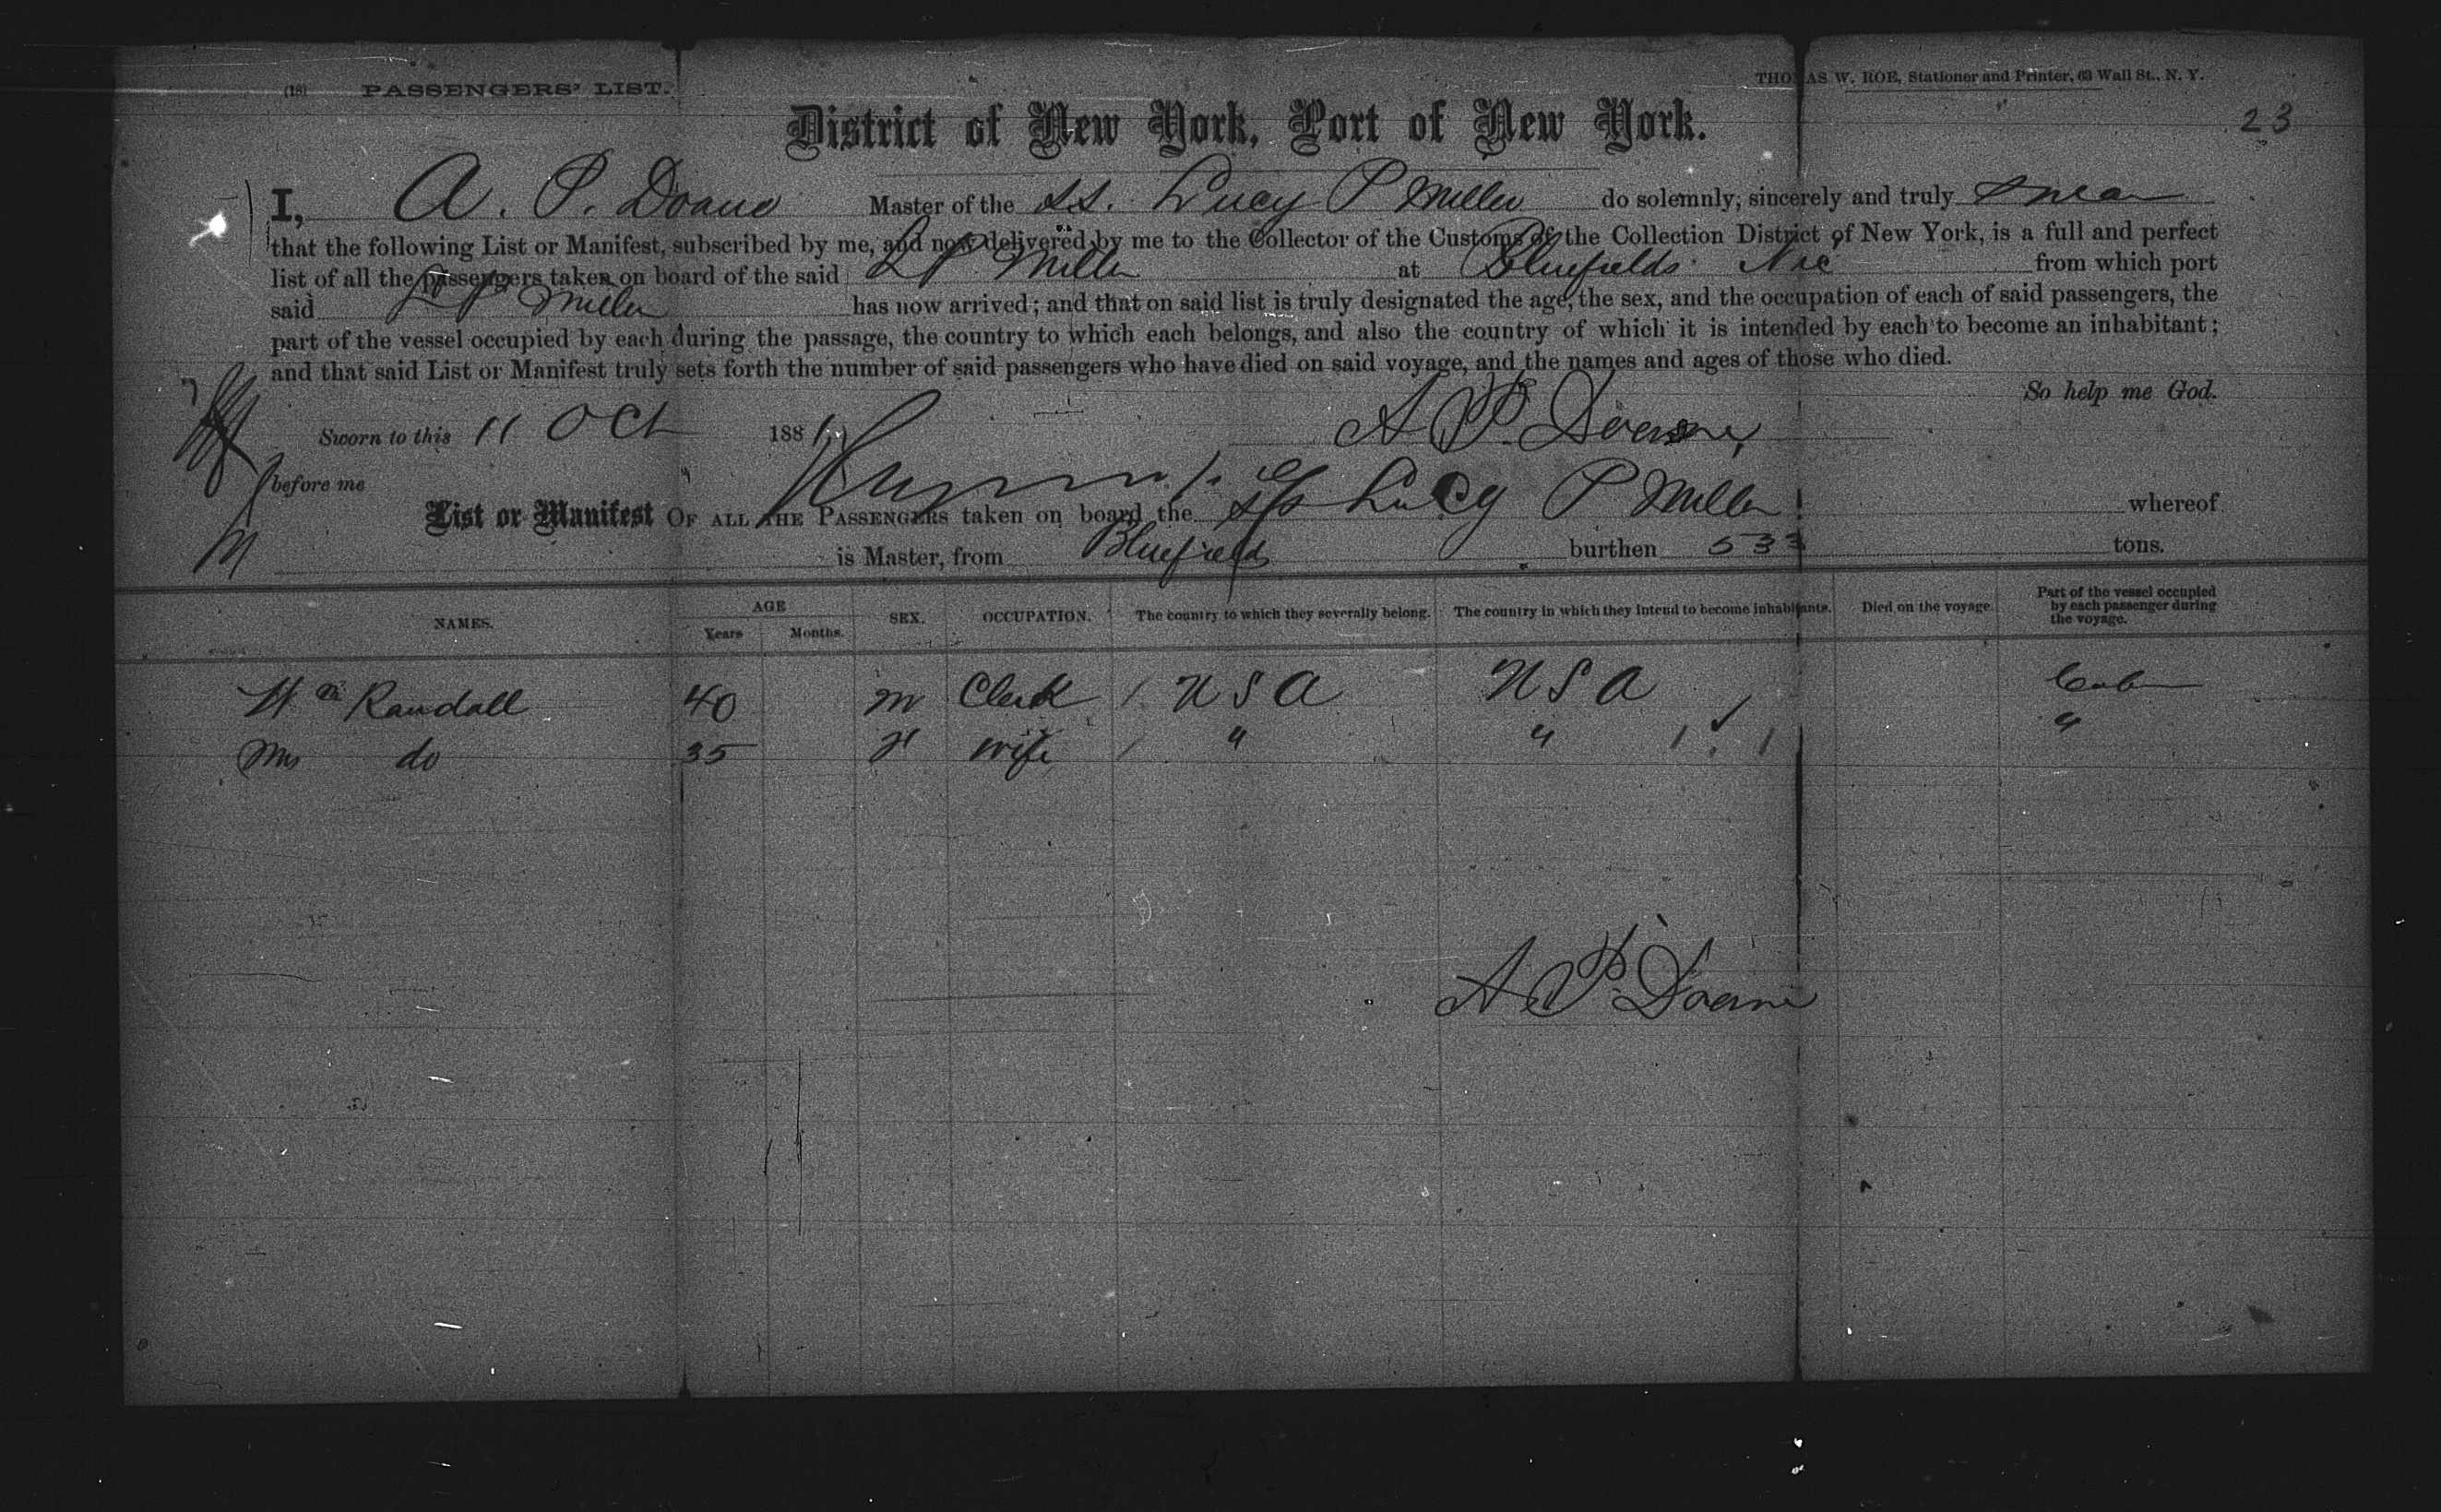 (18) PASSENGERS' LIST.
THOMAS W. ROE, Stationer and Printer, 63 Wall St., N. Y.
23
District of New York, Port of New York.
I, A. P. Doane Master of the SS. Lucy P Miller do solemnly, sincerely and truly swear
that the following List or Manifest, subscribed by me, and now delivered by me to the Collector of the Customs of the Collection District of New York, is a full and perfect
list of all the passengers taken on board of the said L P Miller at Bluefields Nic from which port
said L P Miller has now arrived; and that on said list is truly designated the age, the sex, and the occupation of each of said passengers, the
part of the vessel occupied by each during the passage, the country to which each belongs, and also the country of which it is intended by each to become an inhabitant;
and that said List or Manifest truly sets forth the number of said passengers who have died on said voyage, and the names and ages of those who died.
So help me God.
Sworn to this 11 Oct 188 A P. Doane
before me
List or Manifest OF ALL THE PASSENGERS taken on board the S/S Lucy P Miller whereof
is Master, from Bluefields burthen 533 tons.
NAMES. AGE Years Months. SEX. OCCUPATION. The country to which they severally belong. The country in which they intend to become inhabitants. Died on the voyage. Part of the vessel occupied by each passenger during the voyage.
Wm Randall 40 m Clerk / U S A U S A Cabin
Mrs do 35 f wife / " " 1 ✓ 1 "
A P. Doane